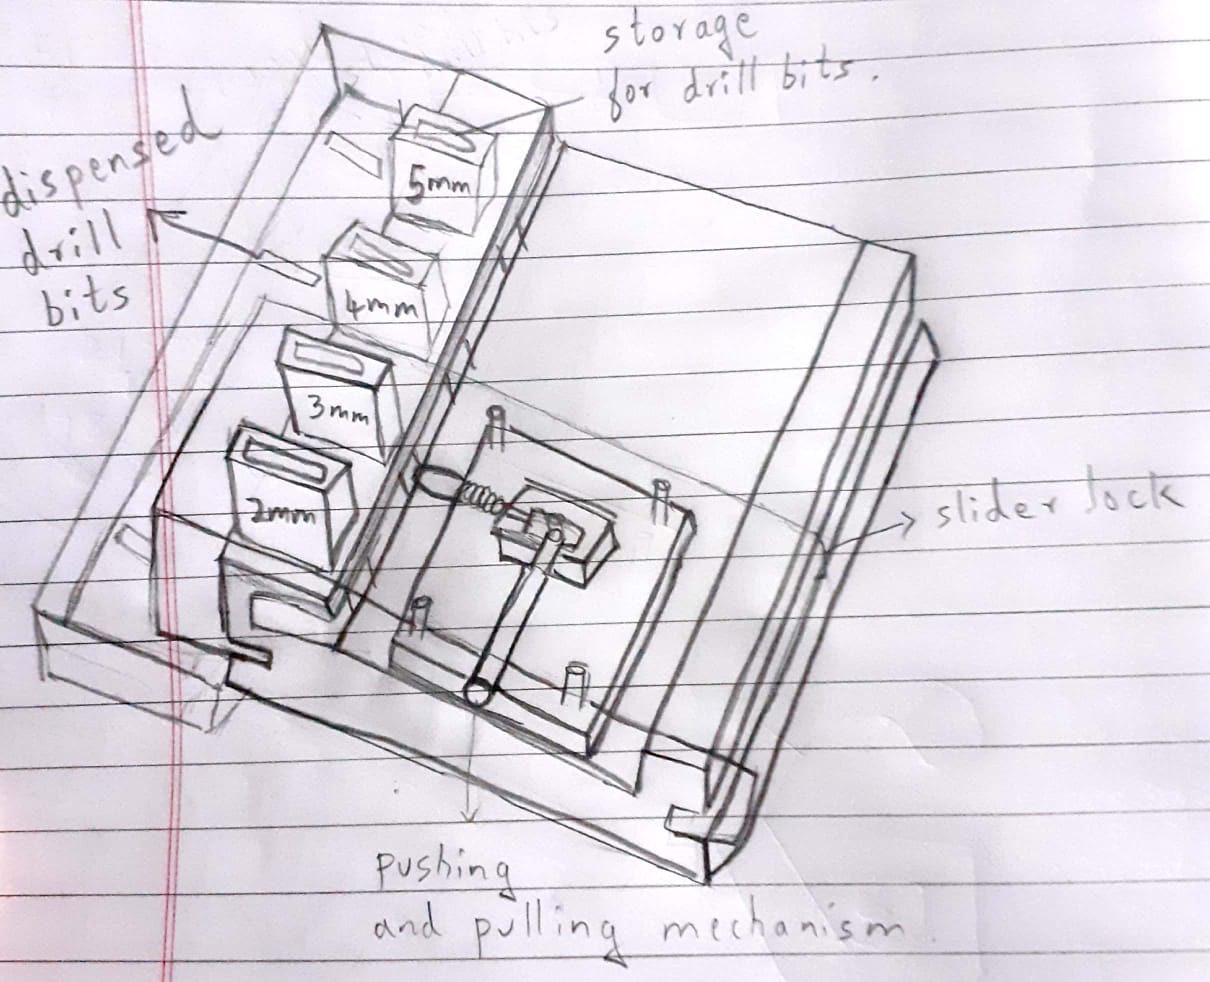 storage
for drill bits.
dispensed
drill
bits
5mm
4mm
3mm
2mm
slider lock
pushing
and pulling mechanism.